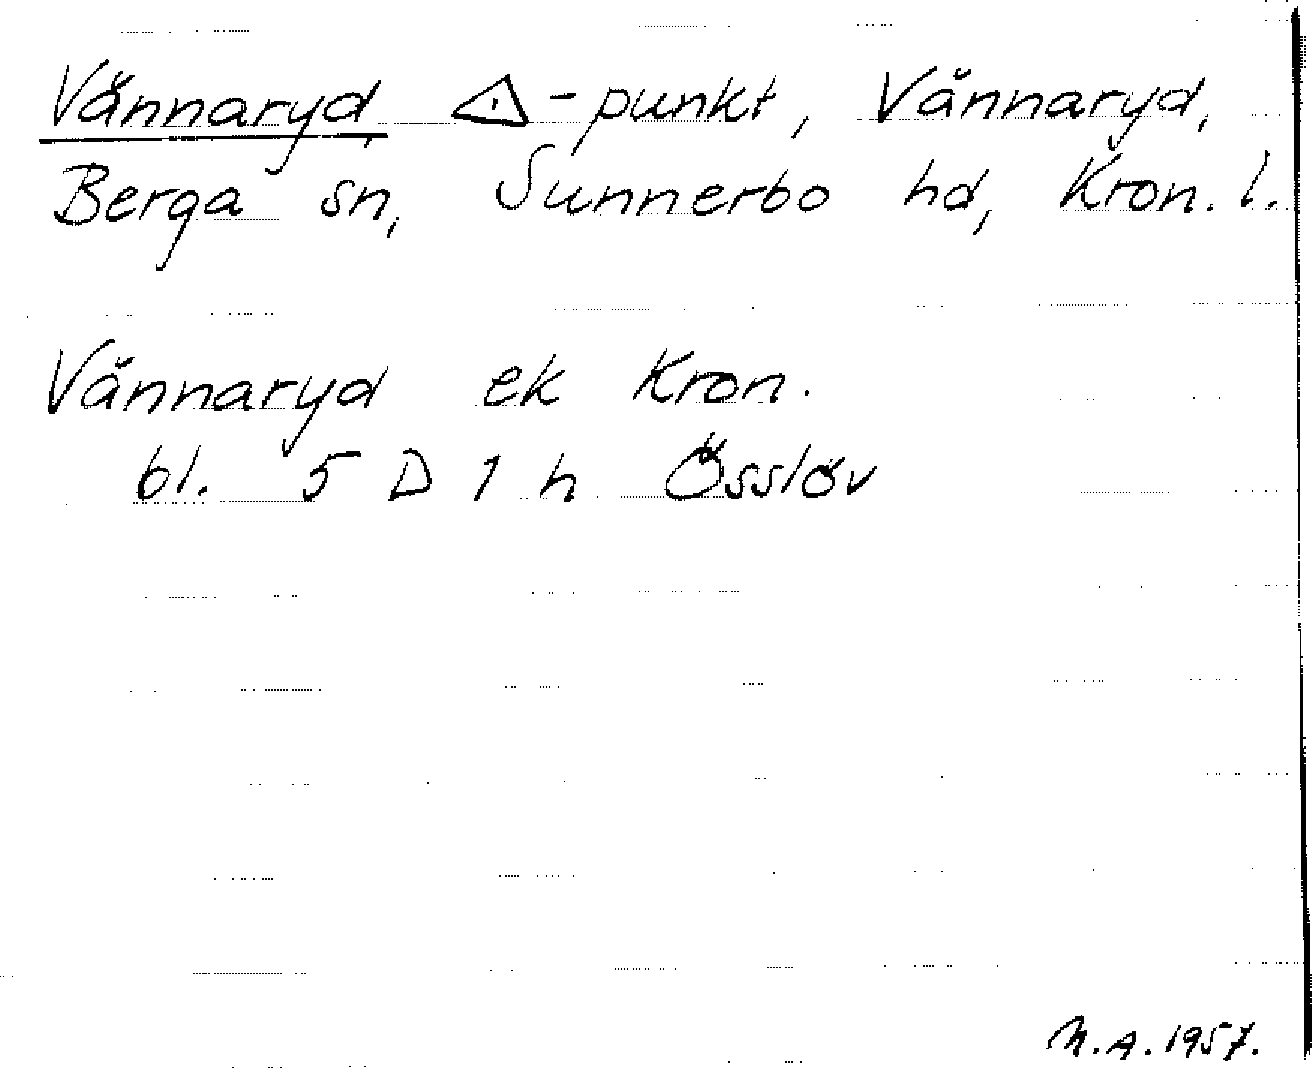 Vännaryd, △-punkt, Vännaryd,
Berga sn, Sunnerbo hd, Kron. l.
Vännaryd ek Kron.
bl. 5 D 1 h Össlöv
N.A. 1957.